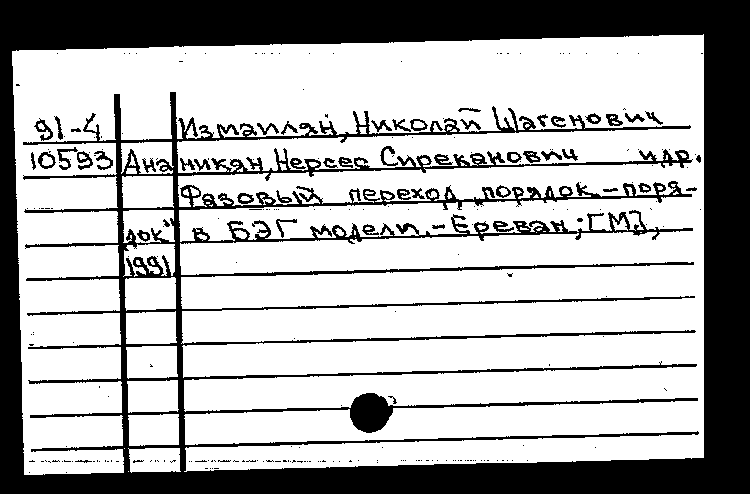 91-4 Измаилян, Николай Шагенович
10593 Ананикян, Нерсес Сиреканович и др.
Фазовый переход „порядок-поря-
док" в БЭГ модели.-Ереван; [М],
1991.